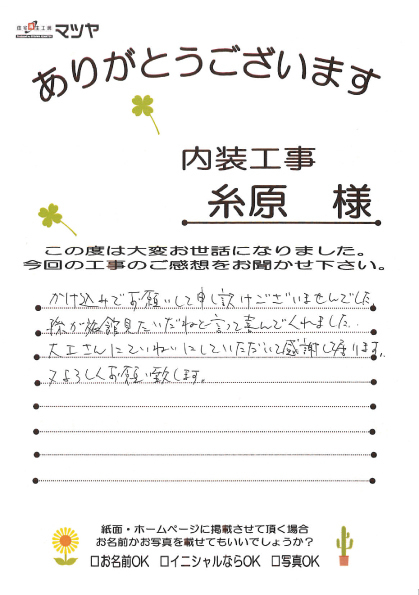 マツヤ
ありがとうございます
内装工事
糸原 様
この度は大変お世話になりました。
今回の工事のご感想をお聞かせ下さい。
かけ込みでお願いして申し訳けございませんでした。
孫が旅館見たいだねと言って喜んでくれました。
大工さんにていねいにしていただいて感謝して居ります。
又よろしくお願い致します。
紙面・ホームページに掲載させて頂く場合
お名前かお写真を載せてもいいでしょうか?
□お名前OK □イニシャルならOK □写真OK